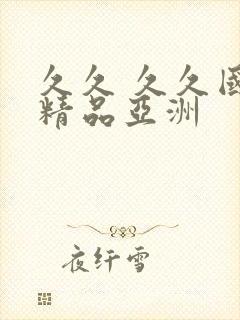 久久 久久國
精品亞洲
夜纤雪